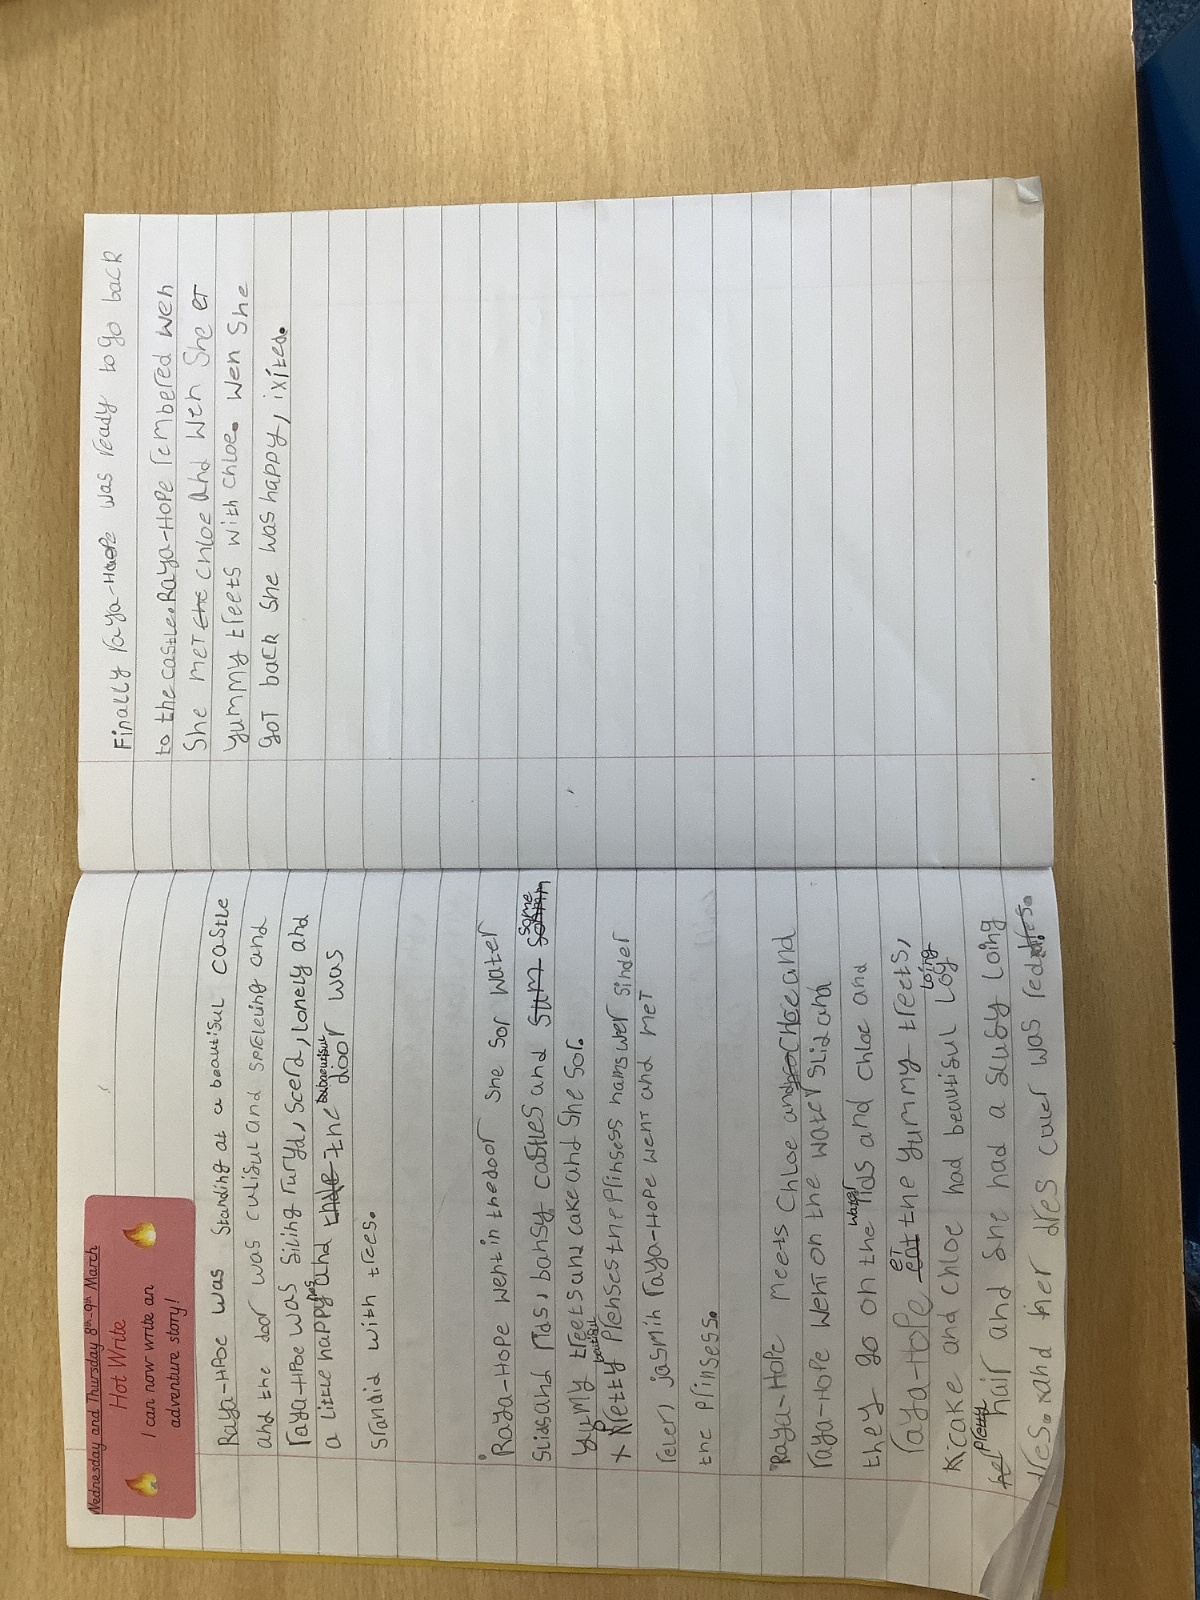 Wednesday and Thursday 8th-9th March
Hot Write
I can now write an
adventure story!
Raya-HPoe was Standing at a beautisul castle
and the door was culisul and spleleing and
raya-HPoe was Siling ruryd, Scerd, lonely and
a little happy and thde the babeautisul door was
srandid with trees.
Raya-Hope went in thedoor She Sor water
Slids and rids, bansy castles and sum some
yummy treets and cake and She Sor.
x Pretty beutisul Plenses the Plinsess nams wer Sinder
reler, jasmin raya-Hope went and met
the plinsess.
Raya-Hope meets Chloe and Chloe and
raya-Hope went on the water slid and
they go on the water rids and chloe and
raya-Hope eat et the yummy treets,
K cake and chloe had beautisul Loy loing
her pletty hair and She had a slufy loing
dres. and her dres culer was red dres.
Finally raya-Hope was ready to go back
to the castle. Raya-Hope rembered wen
She met the Chloe and Wen She et
yummy treets with Chloe. Wen She
got back She was happy, ixited.